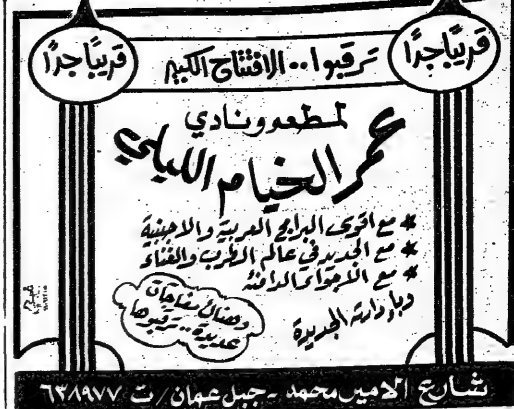 قريبًا جدًا
ترقبوا .. الافتتاح الكبير
قريبًا جدًا
لمطعم ونادي
عمر الخيام الليلي
* مع اقوى البرامج العربية والاجنبية
* مع الجديد في عالم الطرب والغناء
* مع الاجواء الدافئة
وبإدارته الجديدة
وهناك مفاجآت
عديدة .. ترقبوها ..
شارع الامير محمد - جبل عمان / ت ٦٣٨٩٧٧